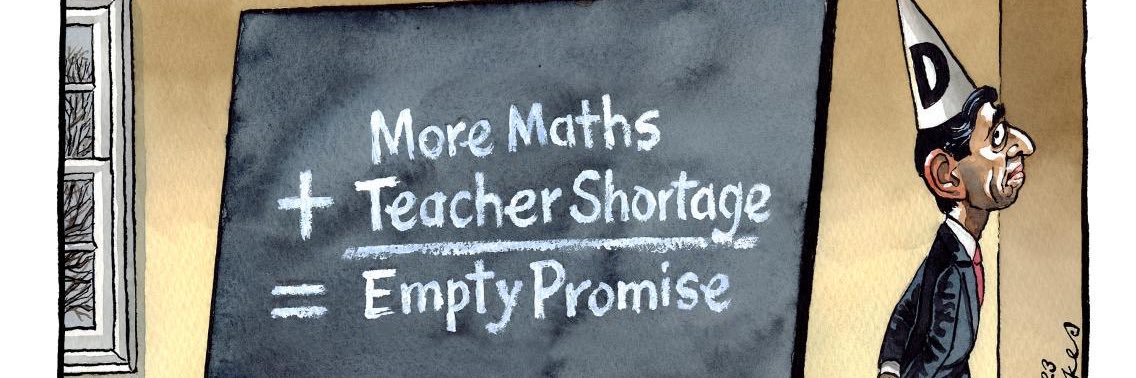 D
More Maths
+ Teacher Shortage
= Empty Promise